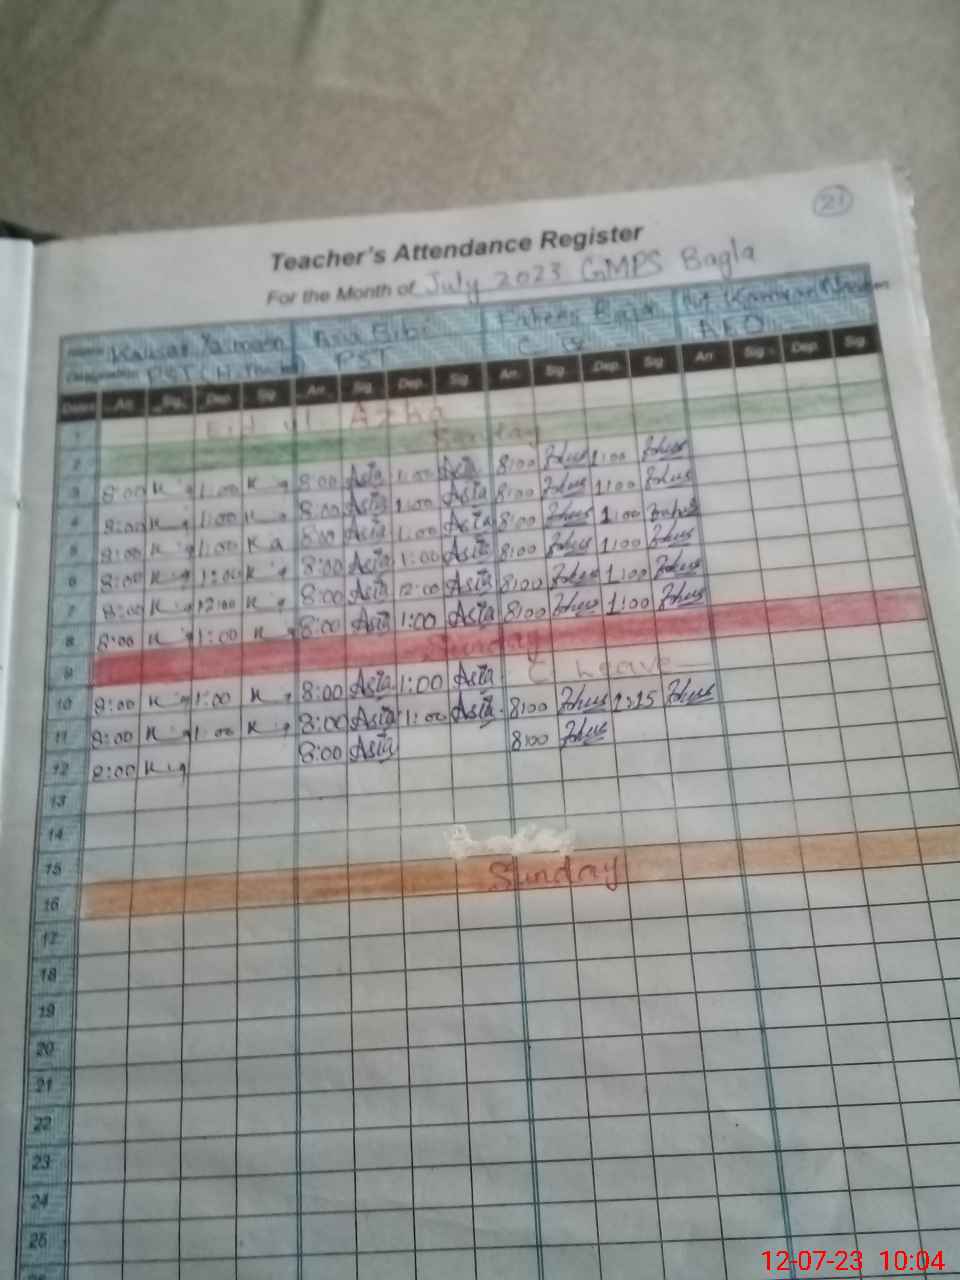 21
Teacher's Attendance Register
For the Month of July 2023 GMPS Bagla
Name Kalsoom Asia Bibi
Designation PST (H.Teacher) PST C IV AEO
Dates Arr. Sig. Dep. Sig. Arr. Sig. Dep. Sig. Arr. Sig. Dep. Sig. Arr. Sig. Dep. Sig.
1 Eid ul Azha
2 Sunday
3 8:00 K 1:00 K 8:00 Asia 1:00 Asia 8:00 1:00
4 8:00 K 1:00 K 8:00 Asia 1:00 Asia 8:00 1:00
5 8:00 K 1:00 K 8:00 Asia 1:00 Asia 8:00 1:00
6 8:00 K 1:00 K 8:00 Asia 1:00 Asia 8:00 1:00
7 8:00 K 12:00 K 8:00 Asia 12:00 Asia 8:00 1:00
8 8:00 K 1:00 K 8:00 Asia 1:00 Asia 8:00 1:00
9 Sunday
10 8:00 K 1:00 K 8:00 Asia 1:00 Asia C Leave
11 8:00 K 1:00 K 8:00 Asia 1:00 Asia 8:00 1:15
12 8:00 K 8:00 Asia 8:00
13
14
15
16 Sunday
17
18
19
20
21
22
23
24
25
12-07-23 10:04